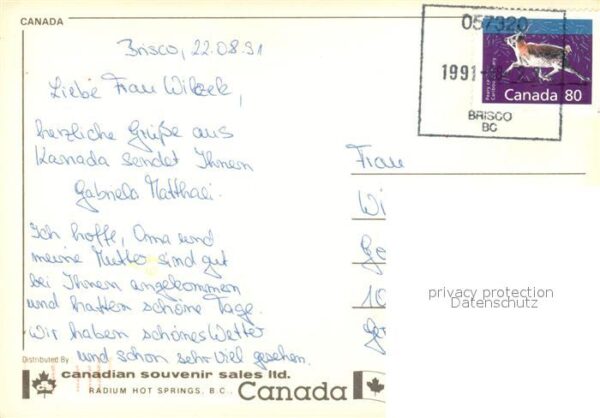 CANADA
Brisco, 22.08.91
Liebe Frau Wilzek,
herzliche Grüße aus
Kanada sendet Ihnen
Gabriela Matthäi.
Ich hoffe, Oma und
meine Mutter sind gut
bei Ihnen angekommen
und hatten schöne Tage.
Wir haben schönes Wetter
und schon sehr viel gesehen.
Distributed By
canadian souvenir sales ltd.
RADIUM HOT SPRINGS, B.C.,
Canada
057320
1991
BRISCO
BC
Canada 80
Frau
Wi
Ge
10
Ger
privacy protection
Datenschutz